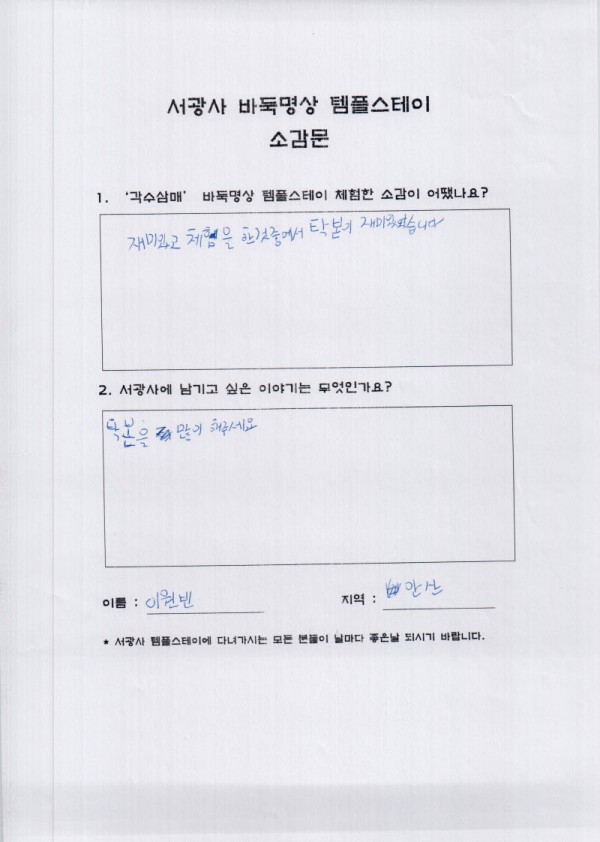 서광사 바둑명상 템플스테이
소감문
1. '각수삼매' 바둑명상 템플스테이 체험한 소감이 어땠나요?
재미있고 체험을 한것중에서 탁본이 재미있었습니다
2. 서광사에 남기고 싶은 이야기는 무엇인가요?
탁본을 많이 해주세요
이름 : 이원빈
지역 : 안산
* 서광사 템플스테이에 다녀가시는 모든 분들이 날마다 좋은날 되시기 바랍니다.